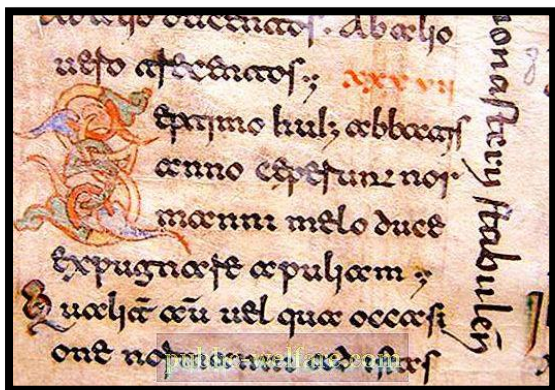 Ab alio
uero xxxvii
Septimo hui; abbatis
anno ceperunt nor
manni melo duce
expugnare apuliam ;
Qualit̄ aū uel qua occasi
one ad istas
monasterij stabulen̄
public-welfare.com